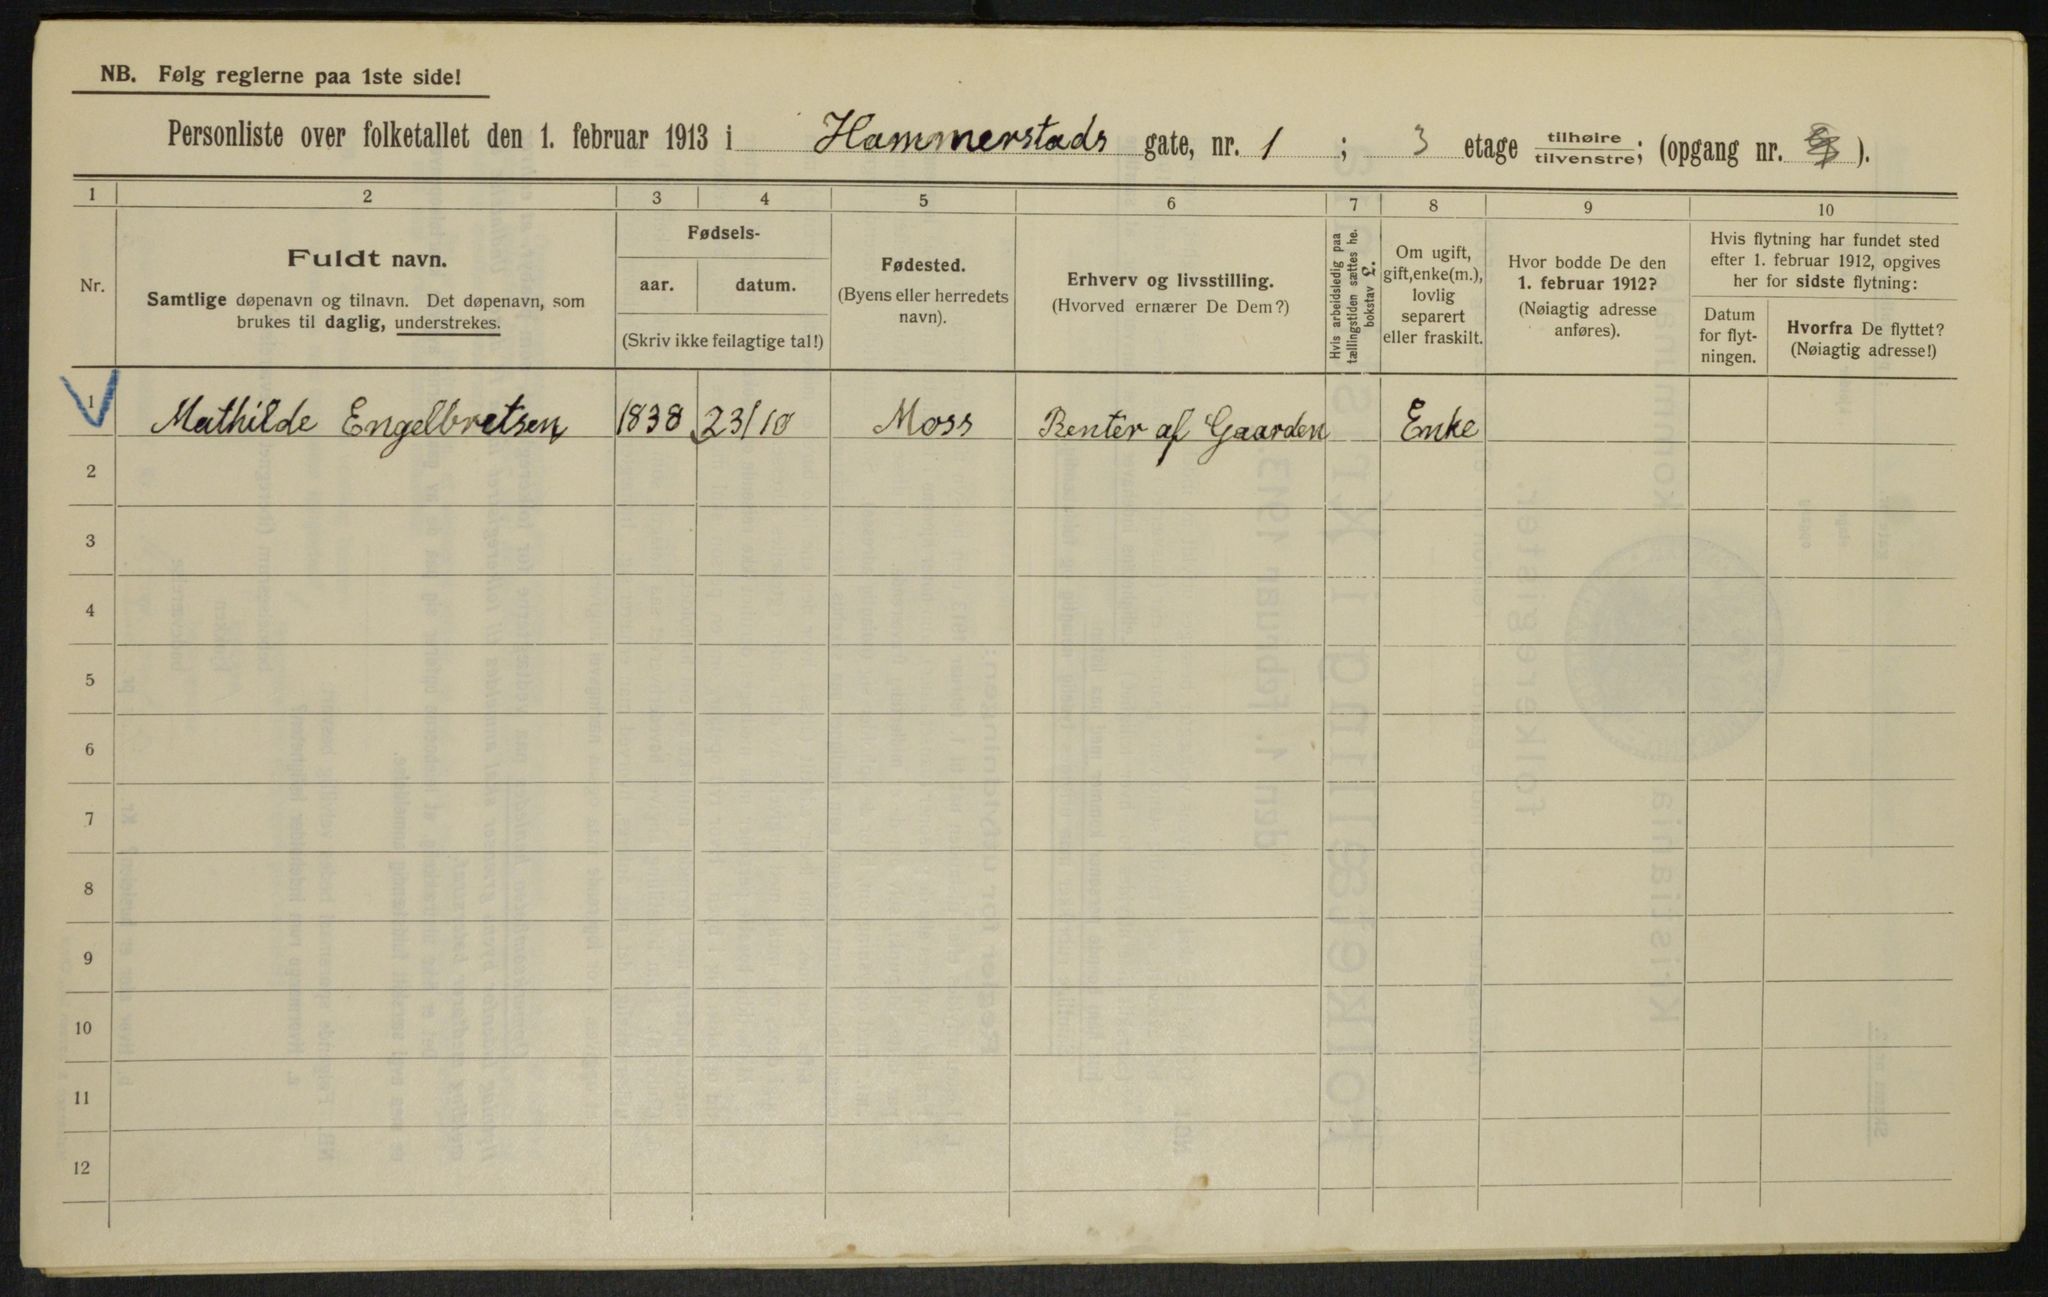 NB. Følg reglerne paa 1ste side!
Personliste over folketallet den 1. februar 1913 i Hammerstads gate, nr. 1 ; 3 etage tilhøire tilvenstre; (opgang nr. ).
1 2 3 4 5 6 7 8 9 10
Nr.
Fuldt navn.
Samtlige døpenavn og tilnavn. Det døpenavn, som
brukes til daglig, understrekes.
Fødsels-
aar. datum.
(Skriv ikke feilagtige tal!)
Fødested.
(Byens eller herredets
navn).
Erhverv og livsstilling.
(Hvorved ernærer De Dem?)
Hvis arbeidsledig paa
tællingstiden sættes he.
bokstav L.
Om ugift,
gift, enke(m.),
lovlig
separert
eller fraskilt.
Hvor bodde De den
1. februar 1912?
(Nøiagtig adresse
anføres).
Hvis flytning har fundet sted
efter 1. februar 1912, opgives
her for sidste flytning:
Datum
for flyt-
ningen.
Hvorfra De flyttet?
(Nøiagtig adresse!)
1 Mathilde Engelbretsen 1838 23/10 Moss Renter af Gaarden Enke
2
3
4
5
6
7
8
9
10
11
12